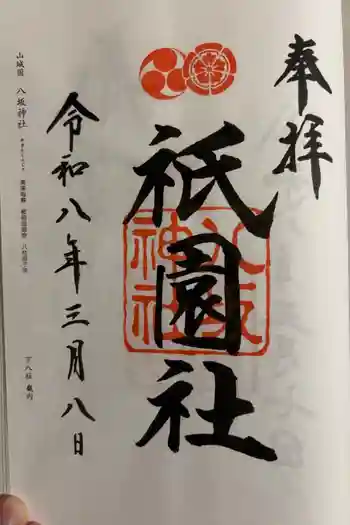 奉拝
祇園社
八坂
神社
令和八年三月八日
山城國 八坂神社